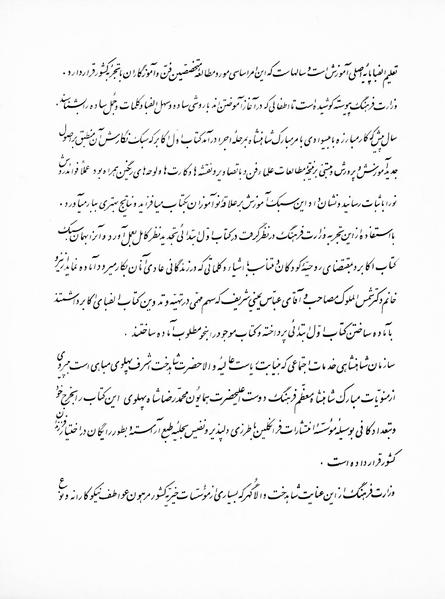 تعلیم الفبا پایهٔ اصلی آموزش است و سالهاست که این امر اساسی مورد مطالعهٔ متخصصین فن و آموزگاران با تجربهٔ کشور قرار دارد .
وزارت فرهنگ پیوسته کوشیده است تا اطفالی که در آغاز آموختن اند با روشی ساده و سهل الفبا و کلمات و جمل ساده را بشناسند.
سال پیش که کار مبارزه با بیسوادی با مر مبارک شاهنشاه بمرحلهٔ اجرا درآمد کتاب اول اکابر که سبک نگارش آن منطبق بر اصول
جدید آموزش و پرورش و مبتنی بر نتیجهٔ مطالعات علماء فن و با تصاویر و نقشه‌ها و کارت‌ها و لوحه‌های رنگین همراه بود عملاً فواید روش
نو را باثبات رسانید و نشان داد این سبک آموزش بر علاقهٔ نوآموزان بکتاب میافزاید و نتایج بهتری ببار میآورد .
با استفاده از این تجربه وزارت فرهنگ در نظر گرفت در کتاب اول ابتدائی تجدید نظر کامل بعمل آورد و آنرا بهمان سبک
کتاب اکابر و بمقتضای روحیهٔ کودکان و متناسب با اشیاء و کلماتی که در زندگانی عادی آنان بکار میرود آماده نماید از اینرو
خانم دکتر شمس الملوک مصاحب و آقای عباس یمینی شریف که سهم مهمی در تهیه و تدوین کتاب الفبای اکابر داشتند
با آماده ساختن کتاب اول ابتدائی پرداخته و کتاب موجود را بنحو مطلوب آماده ساختند .
سازمان شاهنشاهی خدمات اجتماعی که بنیابت ریاست عالیهٔ والاحضرت شاهدخت اشرف پهلوی مباهی است به پیروی
از منویات مبارک شاهنشاه معظم فرهنگ دوست اعلیحضرت همایون محمد رضا شاه پهلوی این کتاب را بخرج خود
و بتعداد کافی بوسیلهٔ مؤسسهٔ انتشارات فرانکلین با طرزی دلپذیر و نفیس بحلیهٔ طبع آراسته و بطور رایگان در اختیار فرزندان
کشور قرار داده است .
وزارت فرهنگ از این عنایت شاهدخت والاگهر که بسیاری از مؤسسات خیریهٔ کشور مرهون عواطف نیکوکارانه و نوع